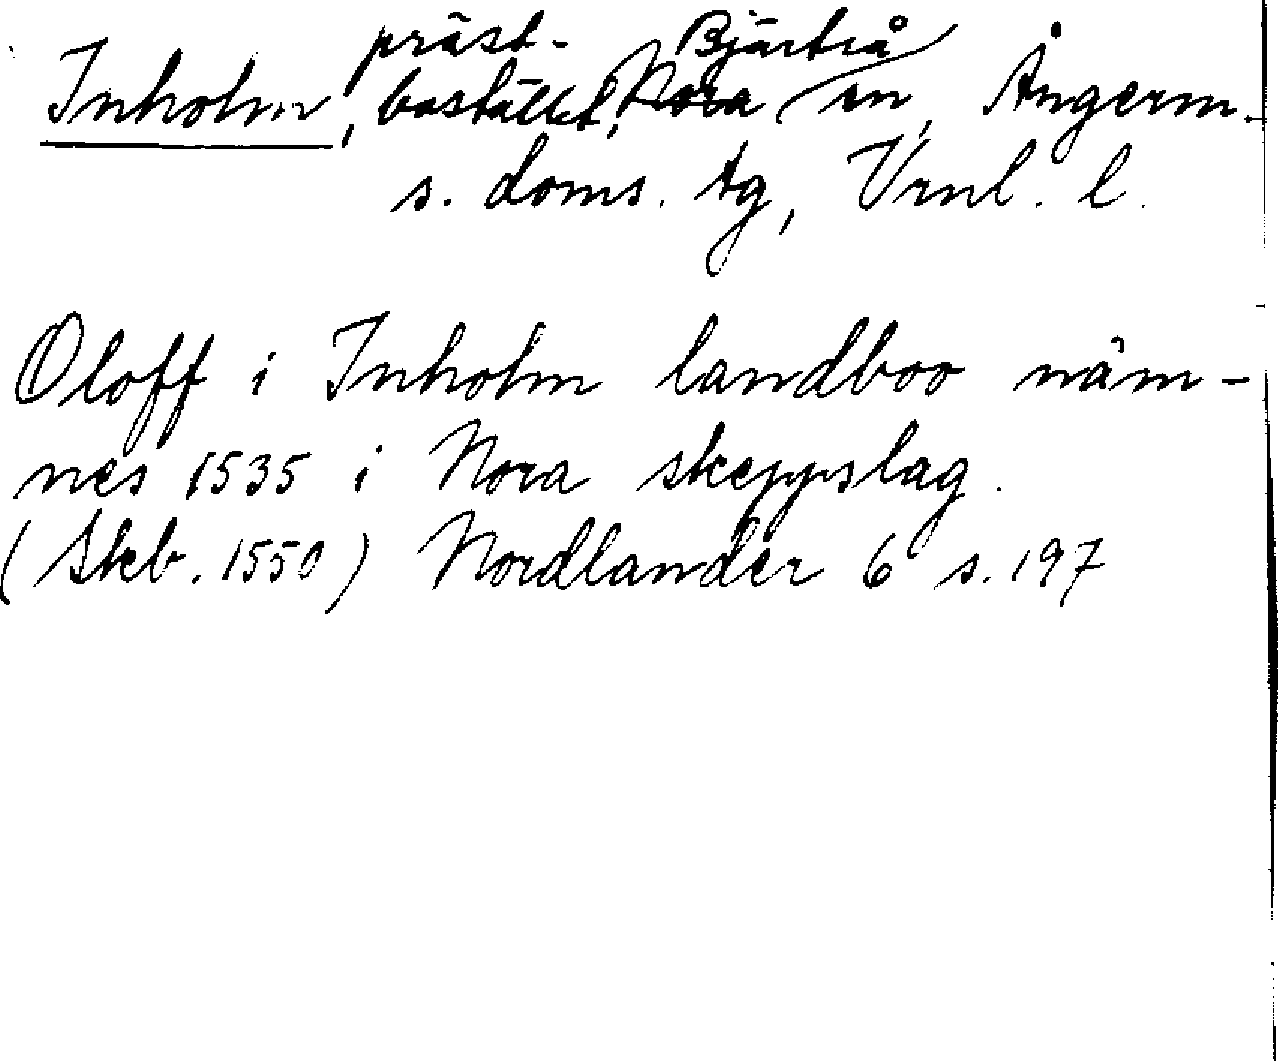 präst- Bjärtrå
Inholm, bostället, Nora sn, Ångerm.
s. doms. tg, Vrnl. l.
Oloff i Inholm landboo näm-
nes 1535 i Nora skeppslag.
(Skb. 1550) Nordlander 6 s. 197